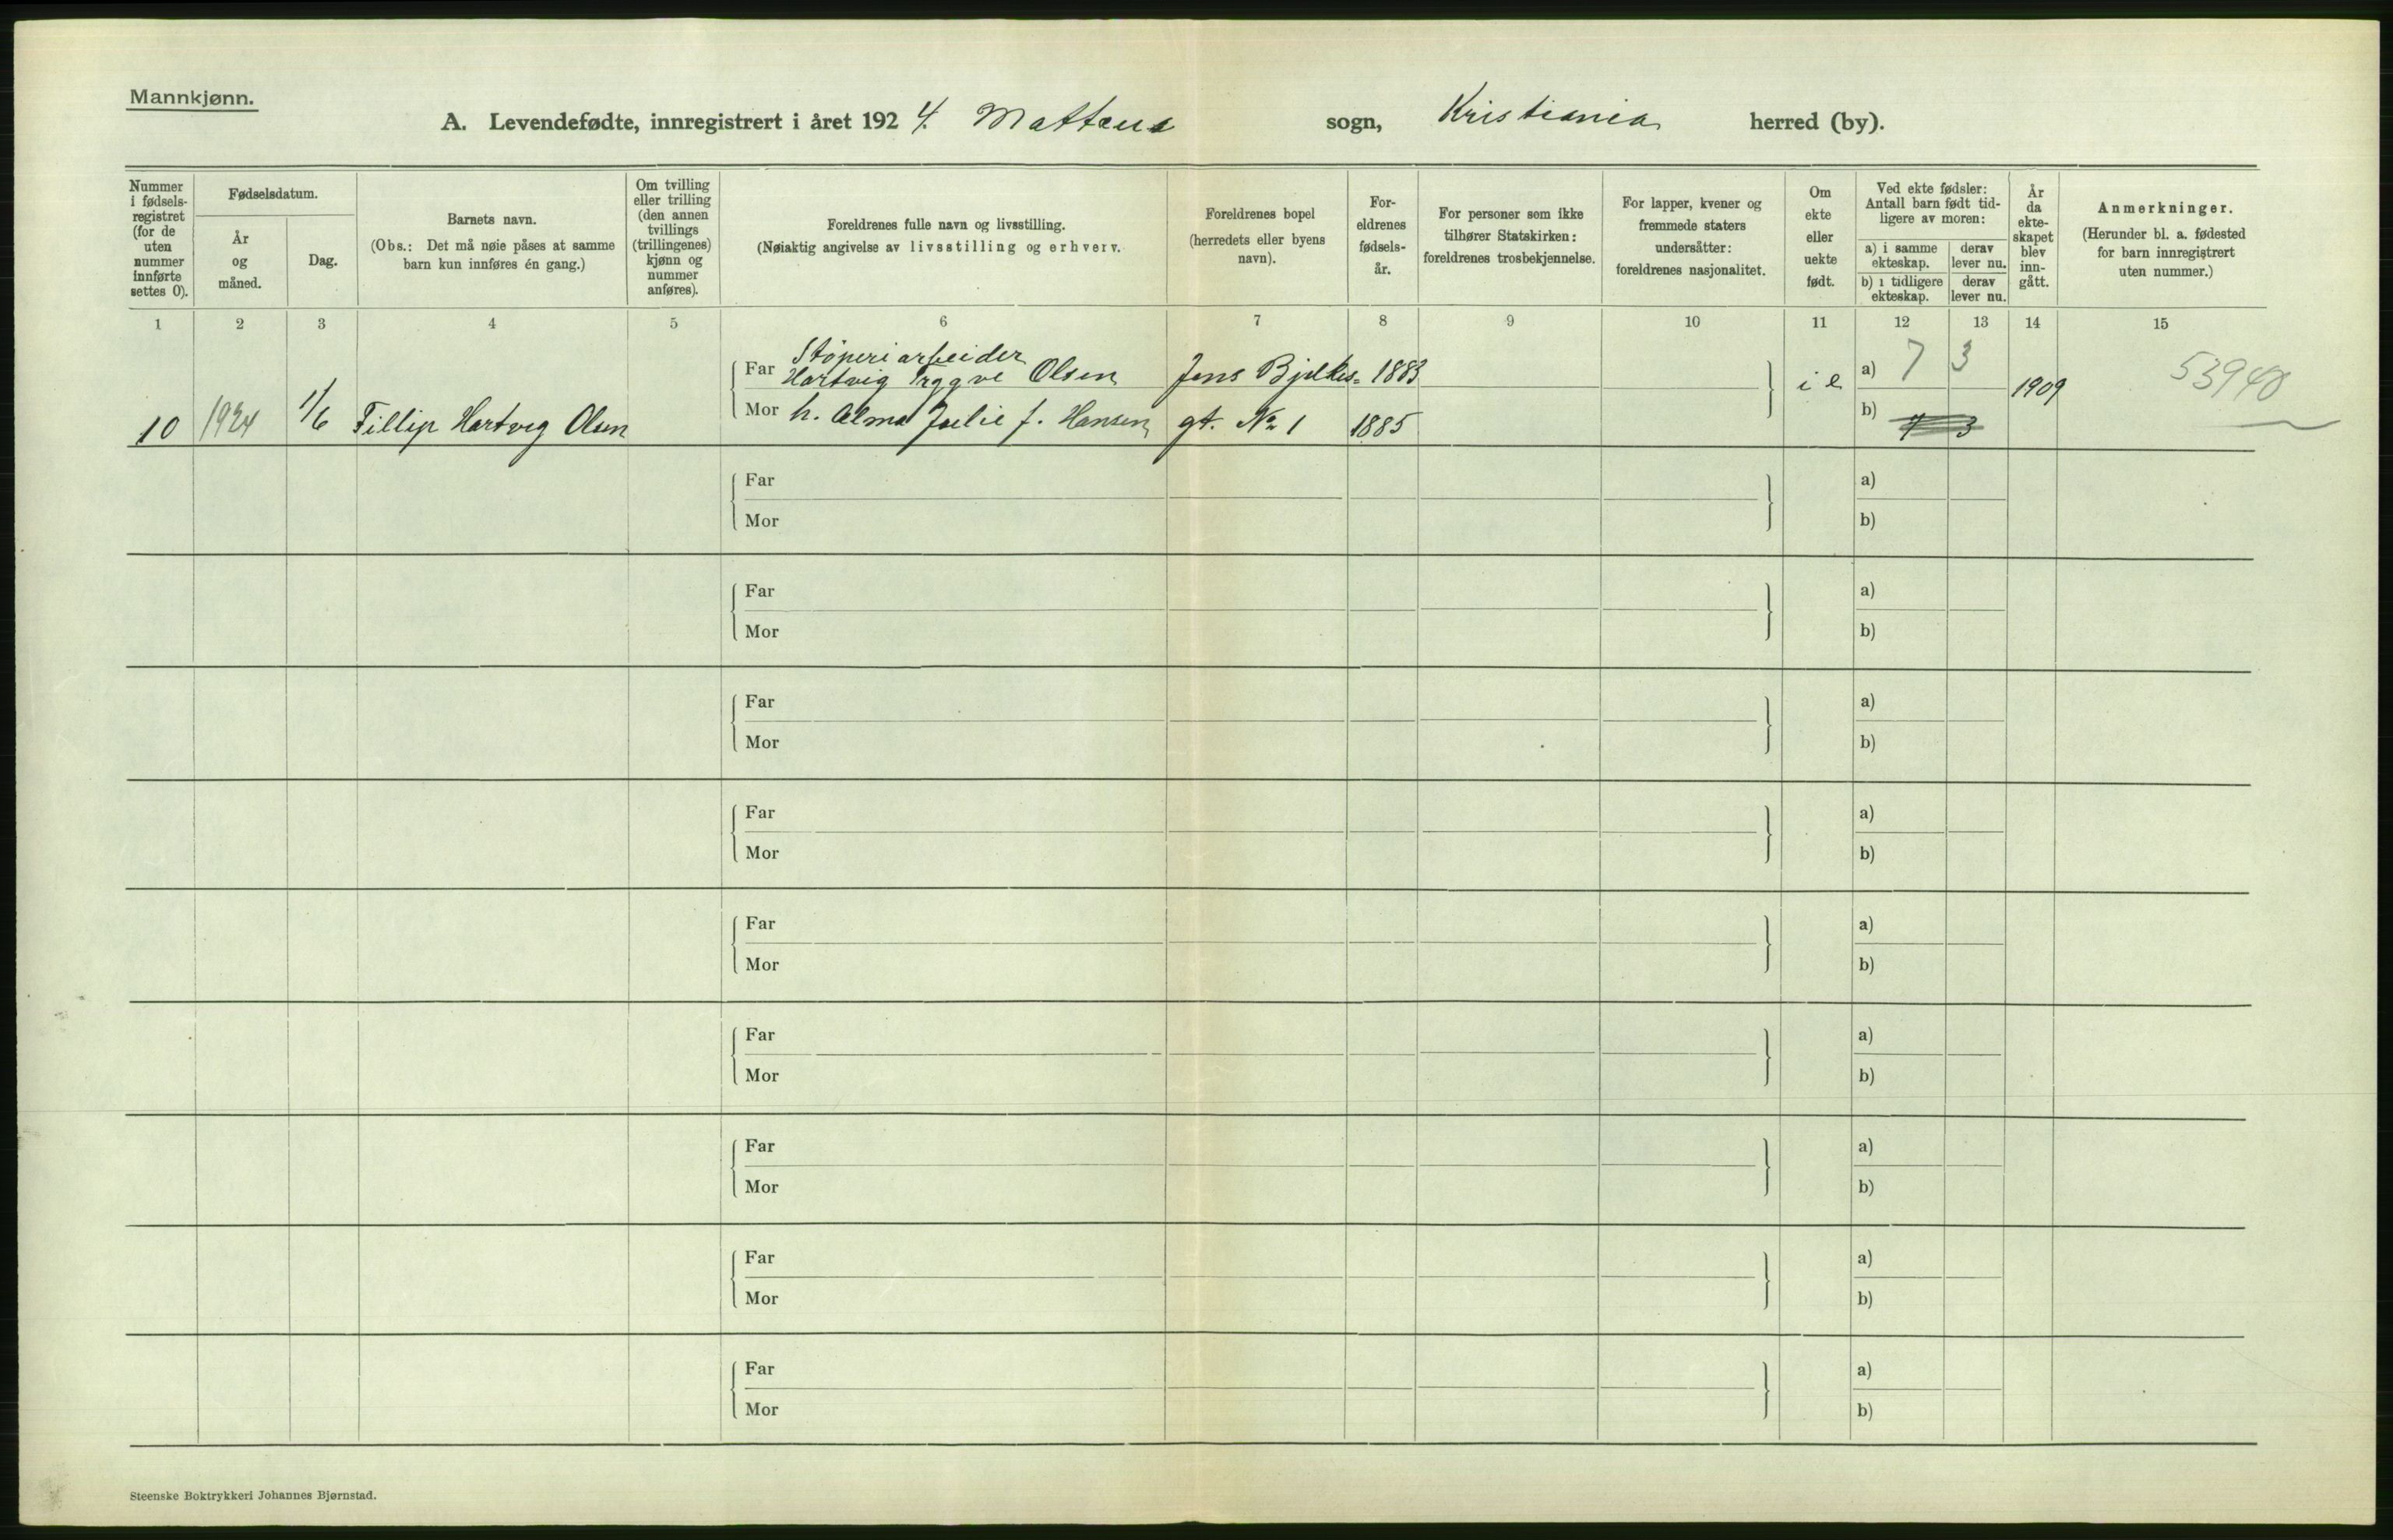 Mannkjønn.
A. Levendefødte, innregistrert i året 1924. Matteus sogn, Kristiania herred (by).
Nummer i fødsels-registret (for de uten nummer innførte settes 0).
Fødselsdatum.
År og måned.
Dag.
Barnets navn.
(Obs.: Det må nøie påses at samme barn kun innføres én gang.)
Om tvilling eller trilling (den annen tvillings (trillingenes) kjønn og nummer anføres).
Foreldrenes fulle navn og livsstilling.
(Nøiaktig angivelse av livsstilling og erhverv.
Foreldrenes bopel (herredets eller byens navn).
For-eldrenes fødsels-år.
For personer som ikke tilhører Statskirken: foreldrenes trosbekjennelse.
For lapper, kvener og fremmede staters undersåtter: foreldrenes nasjonalitet.
Om ekte eller uekte født.
Ved ekte fødsler: Antall barn født tid-ligere av moren:
a) i samme ekteskap.
derav lever nu.
b) i tidligere ekteskap.
derav lever nu.
År da ekte-skapet blev inn-gått.
Anmerkninger.
(Herunder bl. a. fødested for barn innregistrert uten nummer.)
1 2 3 4 5 6 7 8 9 10 11 12 13 14 15
Støperiarbeider
Far Hartvig Tryggve Olsen Jens Bjelkes- 1883 i e a) 7 3 1909 53940
10 1924 1/6 Fillip Hartvig Olsen Mor h. Alma Julie f. Hansen gt. No 1 1885 b) 7 3
Far a)
Mor b)
Far a)
Mor b)
Far a)
Mor b)
Far a)
Mor b)
Far a)
Mor b)
Far a)
Mor b)
Far a)
Mor b)
Far a)
Mor b)
Far a)
Mor b)
Steenske Boktrykkeri Johannes Bjørnstad.